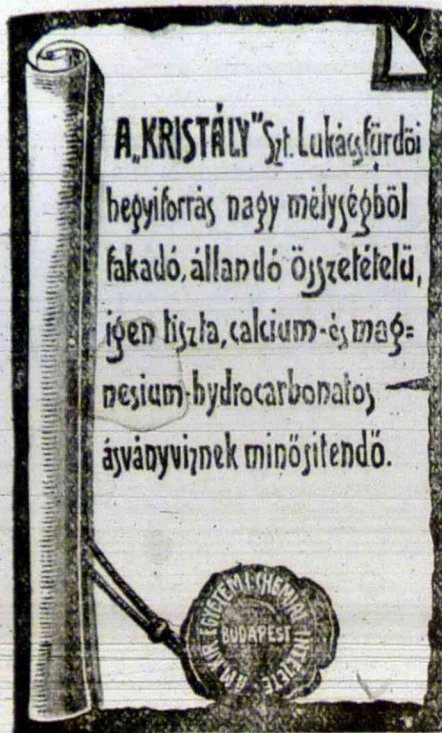 A „KRISTÁLY" Szt. Lukácsfürdői
hegyiforrás nagy mélységből
fakadó, állandó összetételű,
igen tiszta, calcium- és mag=
nesium-hydrocarbonatos
ásványviznek minősitendő.
A M. KIR. EGYETEMI CHEMIAI INTÉZETE
BUDAPEST